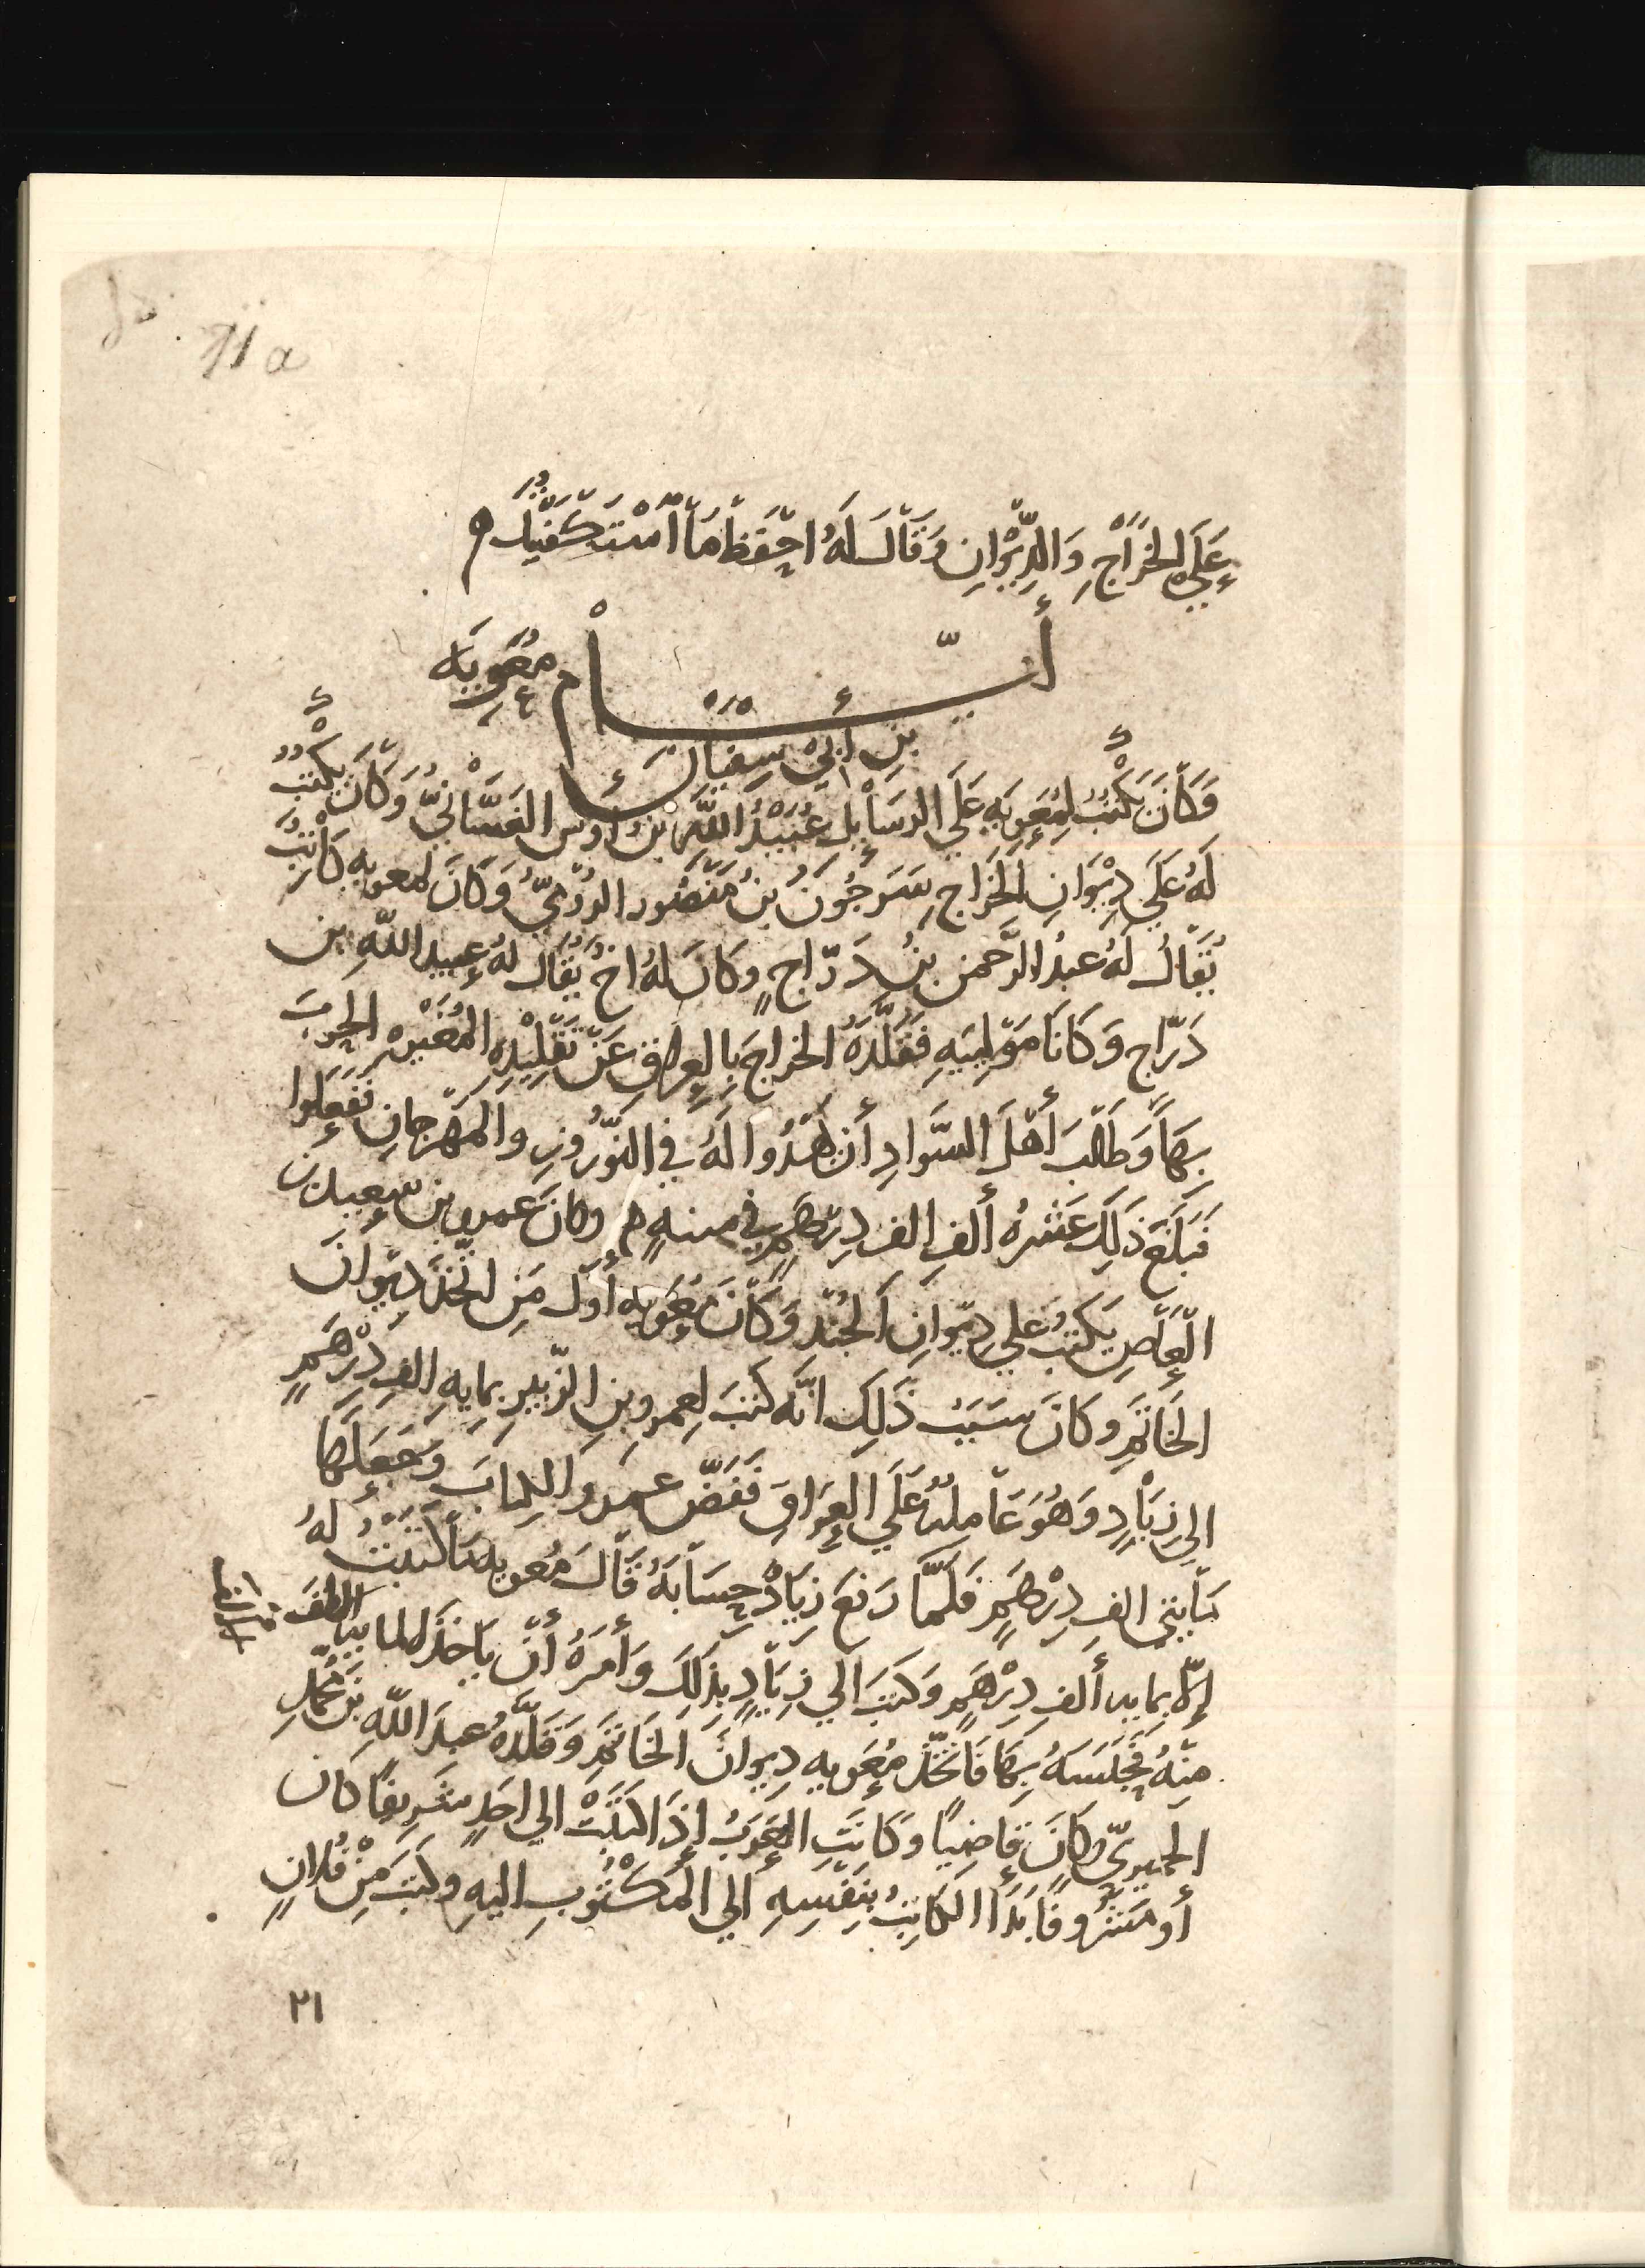 11 a
عَلَي الخَرَاجِ وَالدِّيْوَانِ وَقَالَ لَهُ احْفَظْ مَا اسْتَكْفَيْتُكَ
أَيَّامُ مُعَوِيَة
بْنِ أَبِي سُفْيَانَ
وَكَانَ يَكْتُبُ لِمُعَوِيَةِ عَلَي الرَّسَائِلِ عُبَيْدُ اللَّهِ بْنُ أَوْسٍ الغَسَّانِيُّ وَكَانَ يَكْتُبُ
لَهُ عَلَي دِيْوَانِ الخَرَاجِ سَرْجُوْنُ بْنُ مَنْصُور الرُّوْمِيُّ وَكَانَ لمعويه كَاتِبٌ
يُقَالُ لَهُ عَبْدُ الرَّحمن بْنُ دَرَّاجٍ وَكَانَ لَهُ اخٌ يُقَالُ لَهُ عبيد اللَّهِ بن
دَرّاج وَكَانَا مَوْلَيَيْهِ فَقَلَّدَهُ الخراجَ بِالعِراقِ عَنْ تَقْلِيْدِهِ المُغِيْرَهَ الحربَ
بِهَا وَطَالَبَ أَهْلَ السَّوَادِ أَن يُهْدُوا لَهُ فِي النَّوْرُوزِ والمَهْرَجَانِ فَفَعَلوا
فَبَلَغَ ذَلِكَ عَشْرَهُ أَلفِ الف دِرْهَمٍ في سنهٍ وكانَ عمرو بن سعيد بن
العَاصِ يَكْتُبُ علي دِيْوَانِ الجُنْدِ وَكَانَ مُعَوِيه أَوّلَ مَنِ اتَّخَذَ دِيْوَانَ
الخَاتَمِ وكَانَ سَبَبُ ذَلِكَ انَّه كتبَ لِعمرو بن الزّبير بمايهِ الفِ دِرْهَمٍ
الي زِيَادٍ وَهُوَ عَامِلُهُ عَلَي العِرَاقِ فَفَضَّ عمرو الكِتابَ وَجَعَلَهَا
مَايتي الفِ دِرْهَمٍ فَلَمَّا رَفَعَ زِيَادٌ حِسَابَهُ قَالَ مُعويه مَا كَتَبْتُ لَهُ
إلّا بمايه أَلفِ دِرْهَمٍ وَكتبَ الي زِيَادٍ بِذَلِكَ وَأَمَرَهُ أَنْ يَاخذَ المايه الفَ
مِنْهُ فَحَبَسَهُ بِهَا فَاتَّخَذَ مُعَويه دِيوانَ الخَاتَمِ وَقَلَّدَهُ عبدَ اللَّهِ بْنَ مُحَمَّدٍ
الحميريّ وكَانَ قَاضِيًا وَكَانَتِ العَرَبُ إِذَا كَتَبَتْ الي احَدٍ شَرِيفًا كَانَ
أَو مَشْرُوفًا بَدَا الكَاتِبُ بِنَفْسِهِ إلي المَكْتُوبِ اليهِ وكتبَ مِنْ فُلانٍ
٢١